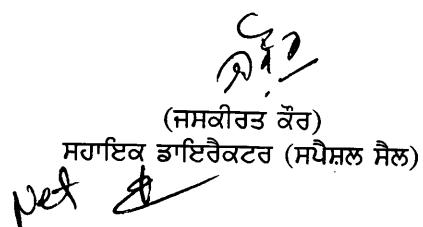 (ਜਸਕੀਰਤ ਕੌਰ)
ਸਹਾਇਕ ਡਾਇਰੈਕਟਰ (ਸਪੈਸ਼ਲ ਸੈਲ)
Net